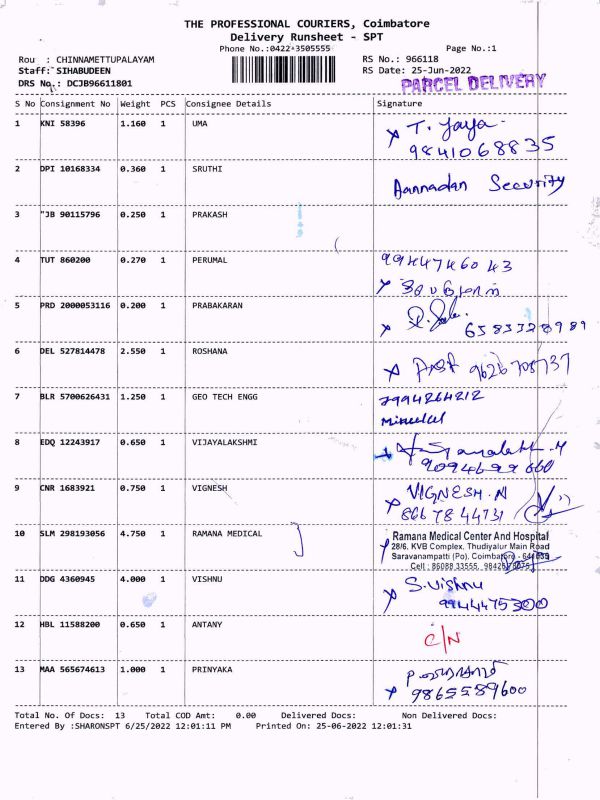 THE PROFESSIONAL COURIERS, Coimbatore
Delivery Runsheet - SPT
Phone No.:0422-3505555 Page No.:1
Rou : CHINNAMETTUPALAYAM RS No.: 966118
Staff: SIHABUDEEN RS Date: 25-Jun-2022
DRS No.: DCJB96611801 PARCEL DELIVERY
S No Consignment No Weight PCS Consignee Details Signature
1 KNI 58396 1.160 1 UMA T. Jaya
9841068835
2 DPI 10168334 0.360 1 SRUTHI Aannadan Security
3 "JB 90115796 0.250 1 PRAKASH
4 TUT 860200 0.270 1 PERUMAL
5 PRD 2000053116 0.200 1 PRABAKARAN
6 DEL 527814478 2.550 1 ROSHANA
7 BLR 5700626431 1.250 1 GEO TECH ENGG 7994264212
8 EDQ 12243917 0.650 1 VIJAYALAKSHMI
9 CNR 1683921 0.750 1 VIGNESH VIGNESH.N
8667844731
10 SLM 298193056 4.750 1 RAMANA MEDICAL Ramana Medical Center And Hospital
28/6, KVB Complex, Thudiyalur Main Road
Saravanampatti (Po). Coimbatore -
Cell : 86088 33555,
11 DDG 4360945 4.000 1 VISHNU S.Vishnu
9944475300
12 HBL 11588200 0.650 1 ANTANY C/N
13 MAA 565674613 1.000 1 PRINYAKA
9865589600
Total No. Of Docs: 13 Total COD Amt: 0.00 Delivered Docs: Non Delivered Docs:
Entered By :SHARONSPT 6/25/2022 12:01:11 PM Printed On: 25-06-2022 12:01:31